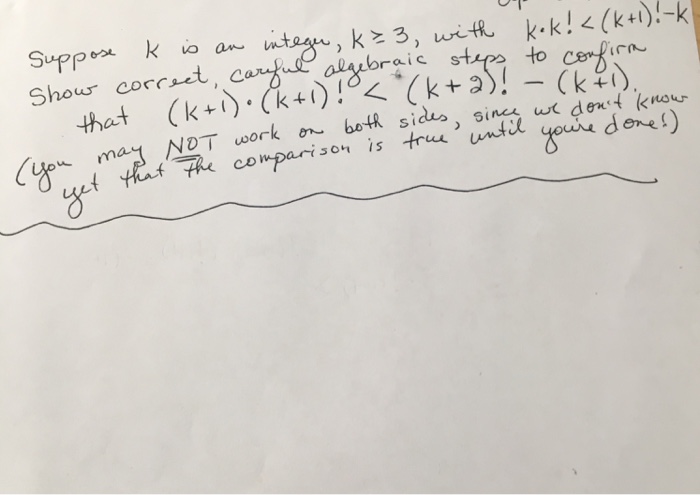 Suppose k is an integer, k ≥ 3, with k·k! < (k+1)!-k
Show correct, careful algebraic steps to confirm
that (k+1)·(k+1)! < (k+2)! - (k+1).
(you may NOT work on both sides, since we don't know
yet that the comparison is true until you're done!)